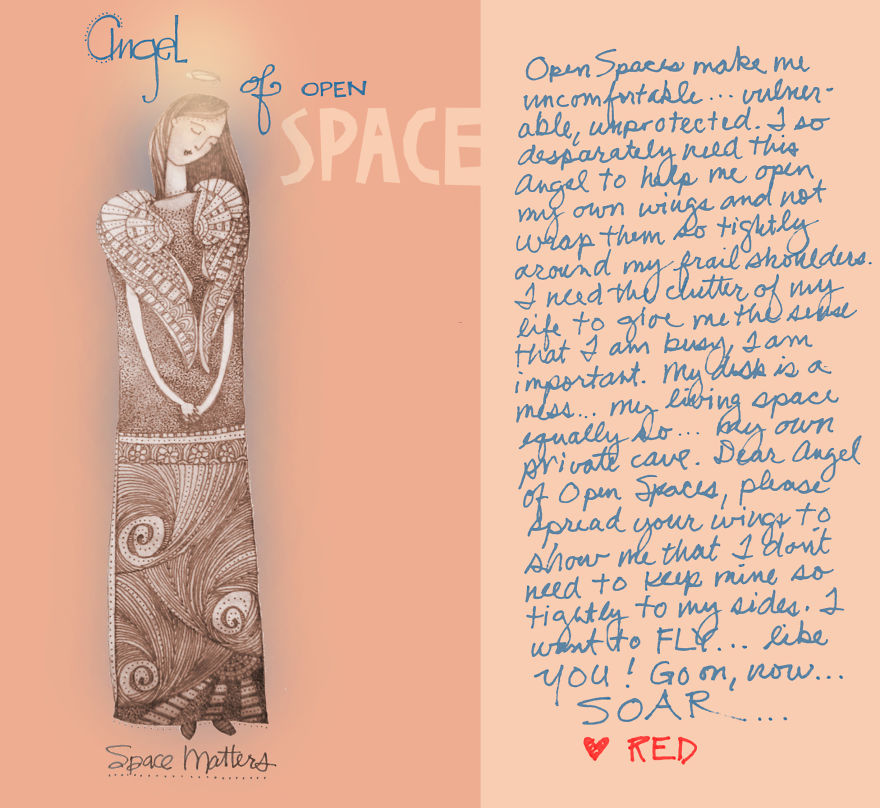 Angel
of OPEN
SPACE
Space Matters
Open Spaces make me
uncomfortable... vulner-
able, unprotected. I so
desparately need this
angel to help me open
my own wings and not
wrap them so tightly
around my frail shoulders.
I need the clutter of my
life to give me the sense
that I am busy, I am
important. My desk is a
mess... my living space
equally so... my own
private cave. Dear Angel
of Open Spaces, please
spread your wings to
show me that I don't
need to keep mine so
tightly to my sides. I
want to FLY... like
YOU! Go on, now...
SOAR...
♥ RED